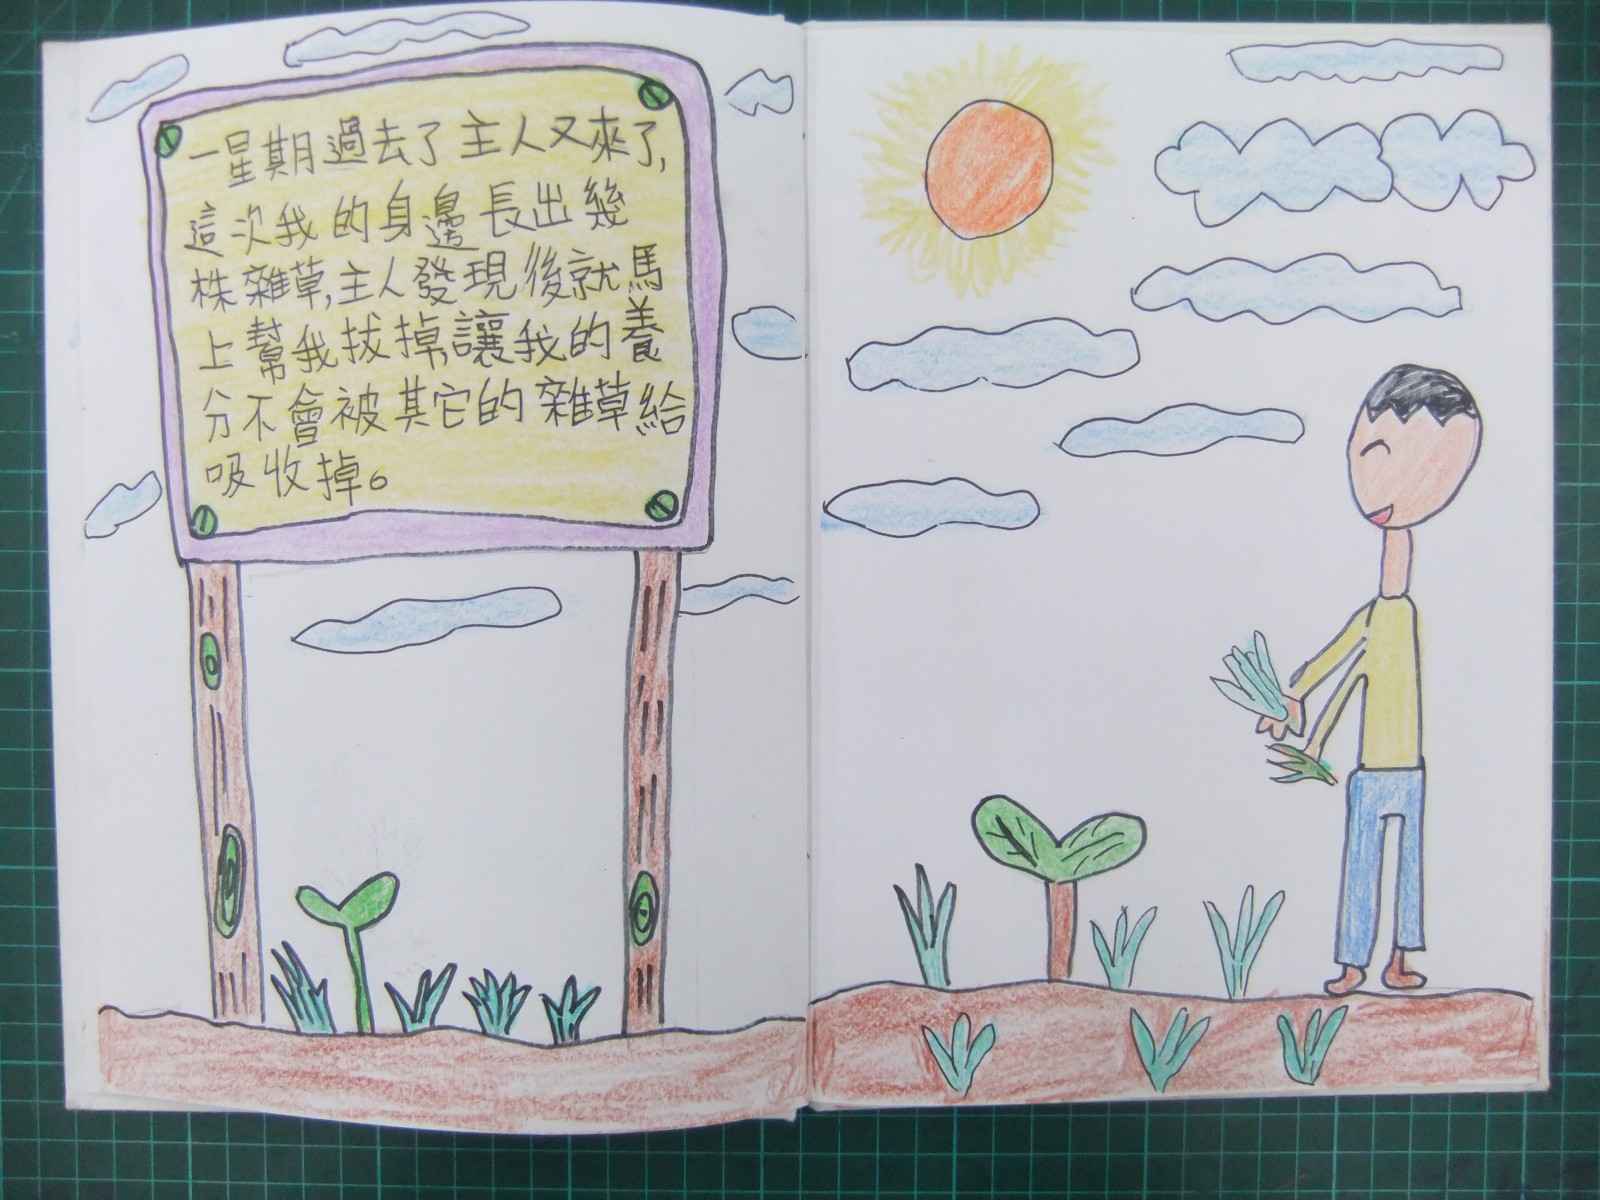 一星期過去了主人又來了,
這次我的身邊長出幾
株雜草,主人發現後就馬
上幫我拔掉,讓我的養
分不會被其它的雜草給
吸收掉。